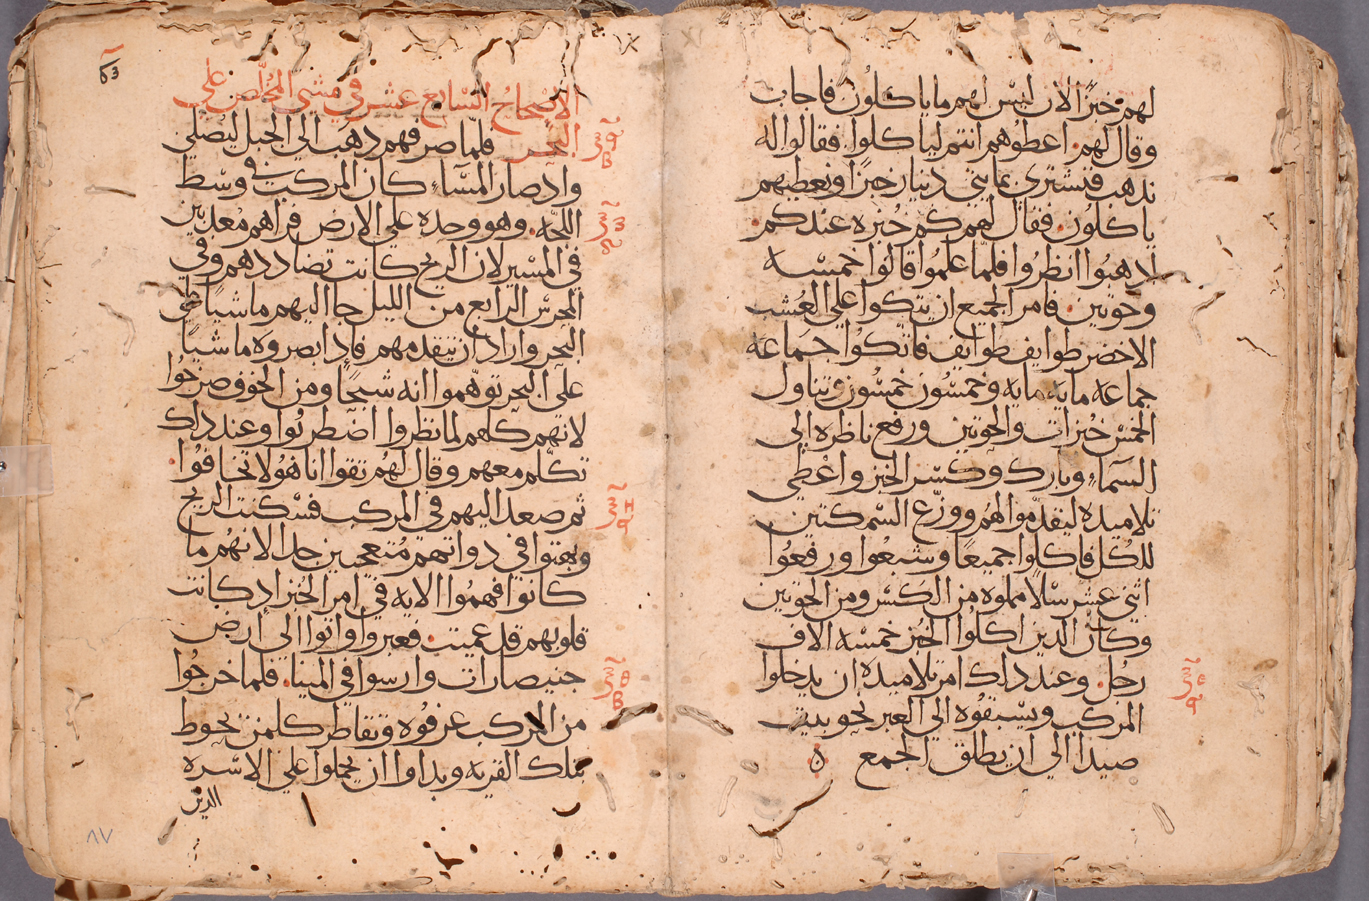 لهم خبزًا لان ليس لهم ما ياكلون فاجاب
وقال لهم. اعطوهم انتم لياكلوا. فقالوا له
ندهب فنشتري بمايتي دينار خبزًا ونعطيهم
ياكلون. فقال لهم كم خبزه عندكم.
ادهبوا انظروا فلما علموا قالوا خمسه
وحوتين. فامر الجميع ان يتكوا علي العشب
الاخضر طوايف طوايف فاتكوا جماعه
جماعه مايه مايه وخمسون خمسون وتناول
الخمس خبزات والحوتين ورفع ناظره الي
السماء وبارك وكسر الخبز واعطي
تلاميده ليقدموا لهم ووزع السمكتين
للكل فاكلوا جميعًا وشبعوا ورفعوا
اثني عشر سلا مملوه من الكسر ومن الحوتين
وكان الدين اكلوا الخبز خمسه الاف
رجل. وعند دلك امر تلاميده ان يدخلوا
المركب ويسبقوه الي العبر نحو بيت
صيدا الي ان يطلق الجمع ه
الاصحاح السابع عشر في مشي المخلص علي
البحر فلما صرفهم دهب الي الجبل ليصلي
واد صار المساء كان المركب في وسط
اللجه. وهو وحده علي الارض فراهم معدبين
في المسير لان الريح كانت تضاددهم وفي
المحرس الرابع من الليل جا اليهم ماشيًا علي
البحر واراد ان يتقدمهم فاد ابصروه ماشيًا
علي البحر توهموا انه شبحًا ومن الخوف صرخوا
لانهم كلهم لما نظروا اضطربوا وعند دلك
تكلم معهم وقال لهم تقوا انا هو لا تخافوا.
ثم صعد اليهم في المركب فسكنت الريح
وبهتوا في دواتهم متعجبين جدا لانهم ما
كانوا فهموا الايه في امر الخبز اد كانت
قلوبهم قد عميت. فعبروا واتوا الي ارض
جنيصارات وارسوا في المينا. فلما خرجوا
من المركب عرفوه وتقاطر كلمن بحوط
بتلك القريه وبداوا ان يحملوا علي الاسره
الدين
٨٧